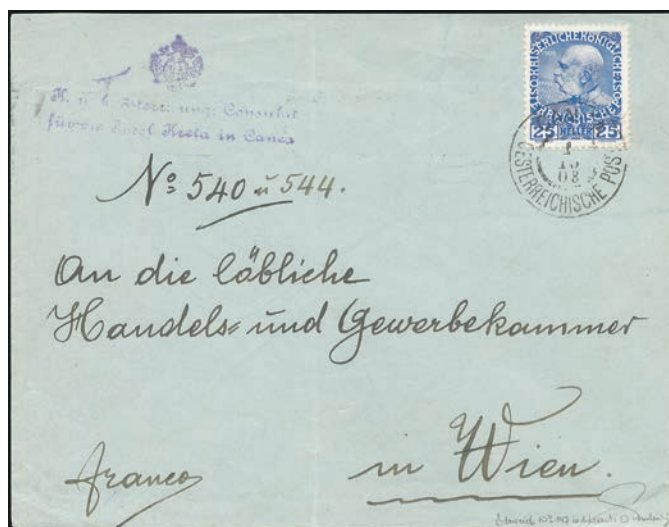 K. u. k. österr. ung: Consulat
für die Insel Kreta in Canea
KAISERLICHE KÖNIGLICHE
ÖSTERREICHISCHE POST
25 HELLER 25
1
10
08
OESTERREICHISCHE POST
No 540 ū 544.
An die löbliche
Handels- und Gewerbekammer
in Wien.
franco